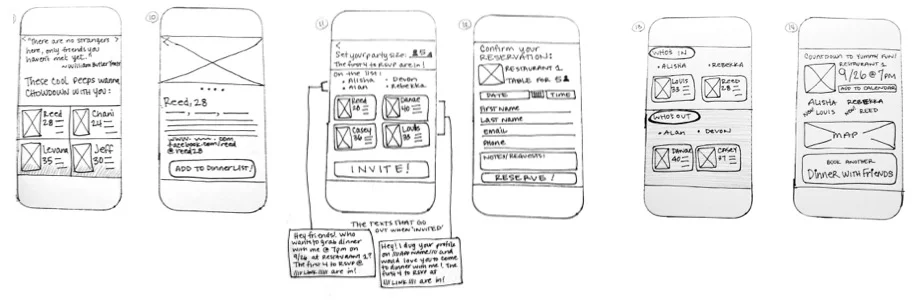 "There are no strangers
here, only friends you
haven't met yet."
-William Butler Yeats
These cool peeps wanna
CHOWDOWN WITH YOU:
Reed
28
Chani
24
Levana
35
Jeff
30
10
Reed, 28
www. . com
facebook.com/reed
@reed28
ADD TO Dinner LIST!
11
Set your party size: 5
The first 4 to RSVP are in!
On the list:
• Alisha
• Devon
• Alan
• Rebekka
Reed
28
Danae
40
Casey
36
Louis
33
INVITE!
THE TEXTS THAT GO
OUT WHEN 'INVITED'
Hey friends! Who
wants to grab dinner
with me @ 7pm on
9/26 at Restaurant 1?
The first 4 to RSVP @
////LINK//// are in!
Hey! I dug your profile
on and
would love you to come
to dinner with me! The
first 4 to RSVP at
////LINK//// are in!
12
Confirm your
RESERVATION:
RESTAURANT 1
TABLE FOR 5
DATE
TIME
First Name
Last Name
email
Phone
NOTES/REQUESTS:
RESERVE!
13
WHO'S IN
• ALISHA
• REBEKKA
Louis
33
REED
28
WHO'S OUT
• Alan
• DEVON
DANAE
40
CASEY
37
14
COUNTDOWN TO YUMMY FUN!
RESTAURANT 1
9/26 @ 7pm
ADD TO CALENDAR
ALISHA
REBEKKA
LOUIS
REED
MAP
BOOK ANOTHER
Dinner WITH Friends